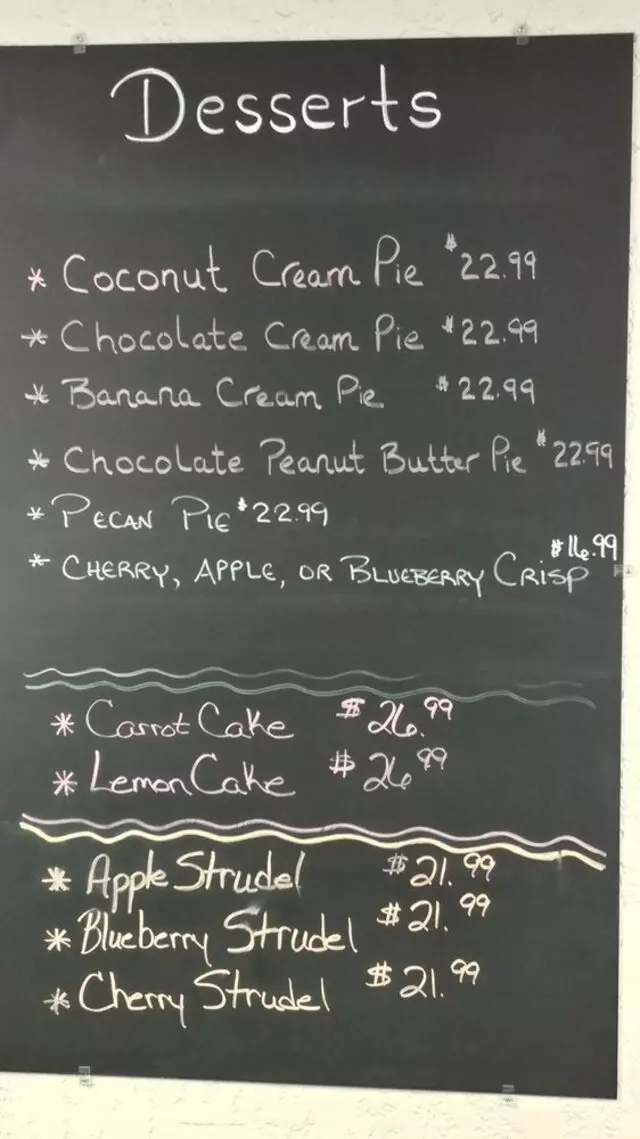 Desserts
* Coconut Cream Pie $22.99
* Chocolate Cream Pie $22.99
* Banana Cream Pie $22.99
* Chocolate Peanut Butter Pie $22.99
* PECAN PIE $22.99
* CHERRY, APPLE, OR BLUEBERRY CRISP $16.99
* Carrot Cake $26.99
* Lemon Cake $26.99
* Apple Strudel $21.99
* Blueberry Strudel $21.99
* Cherry Strudel $21.99